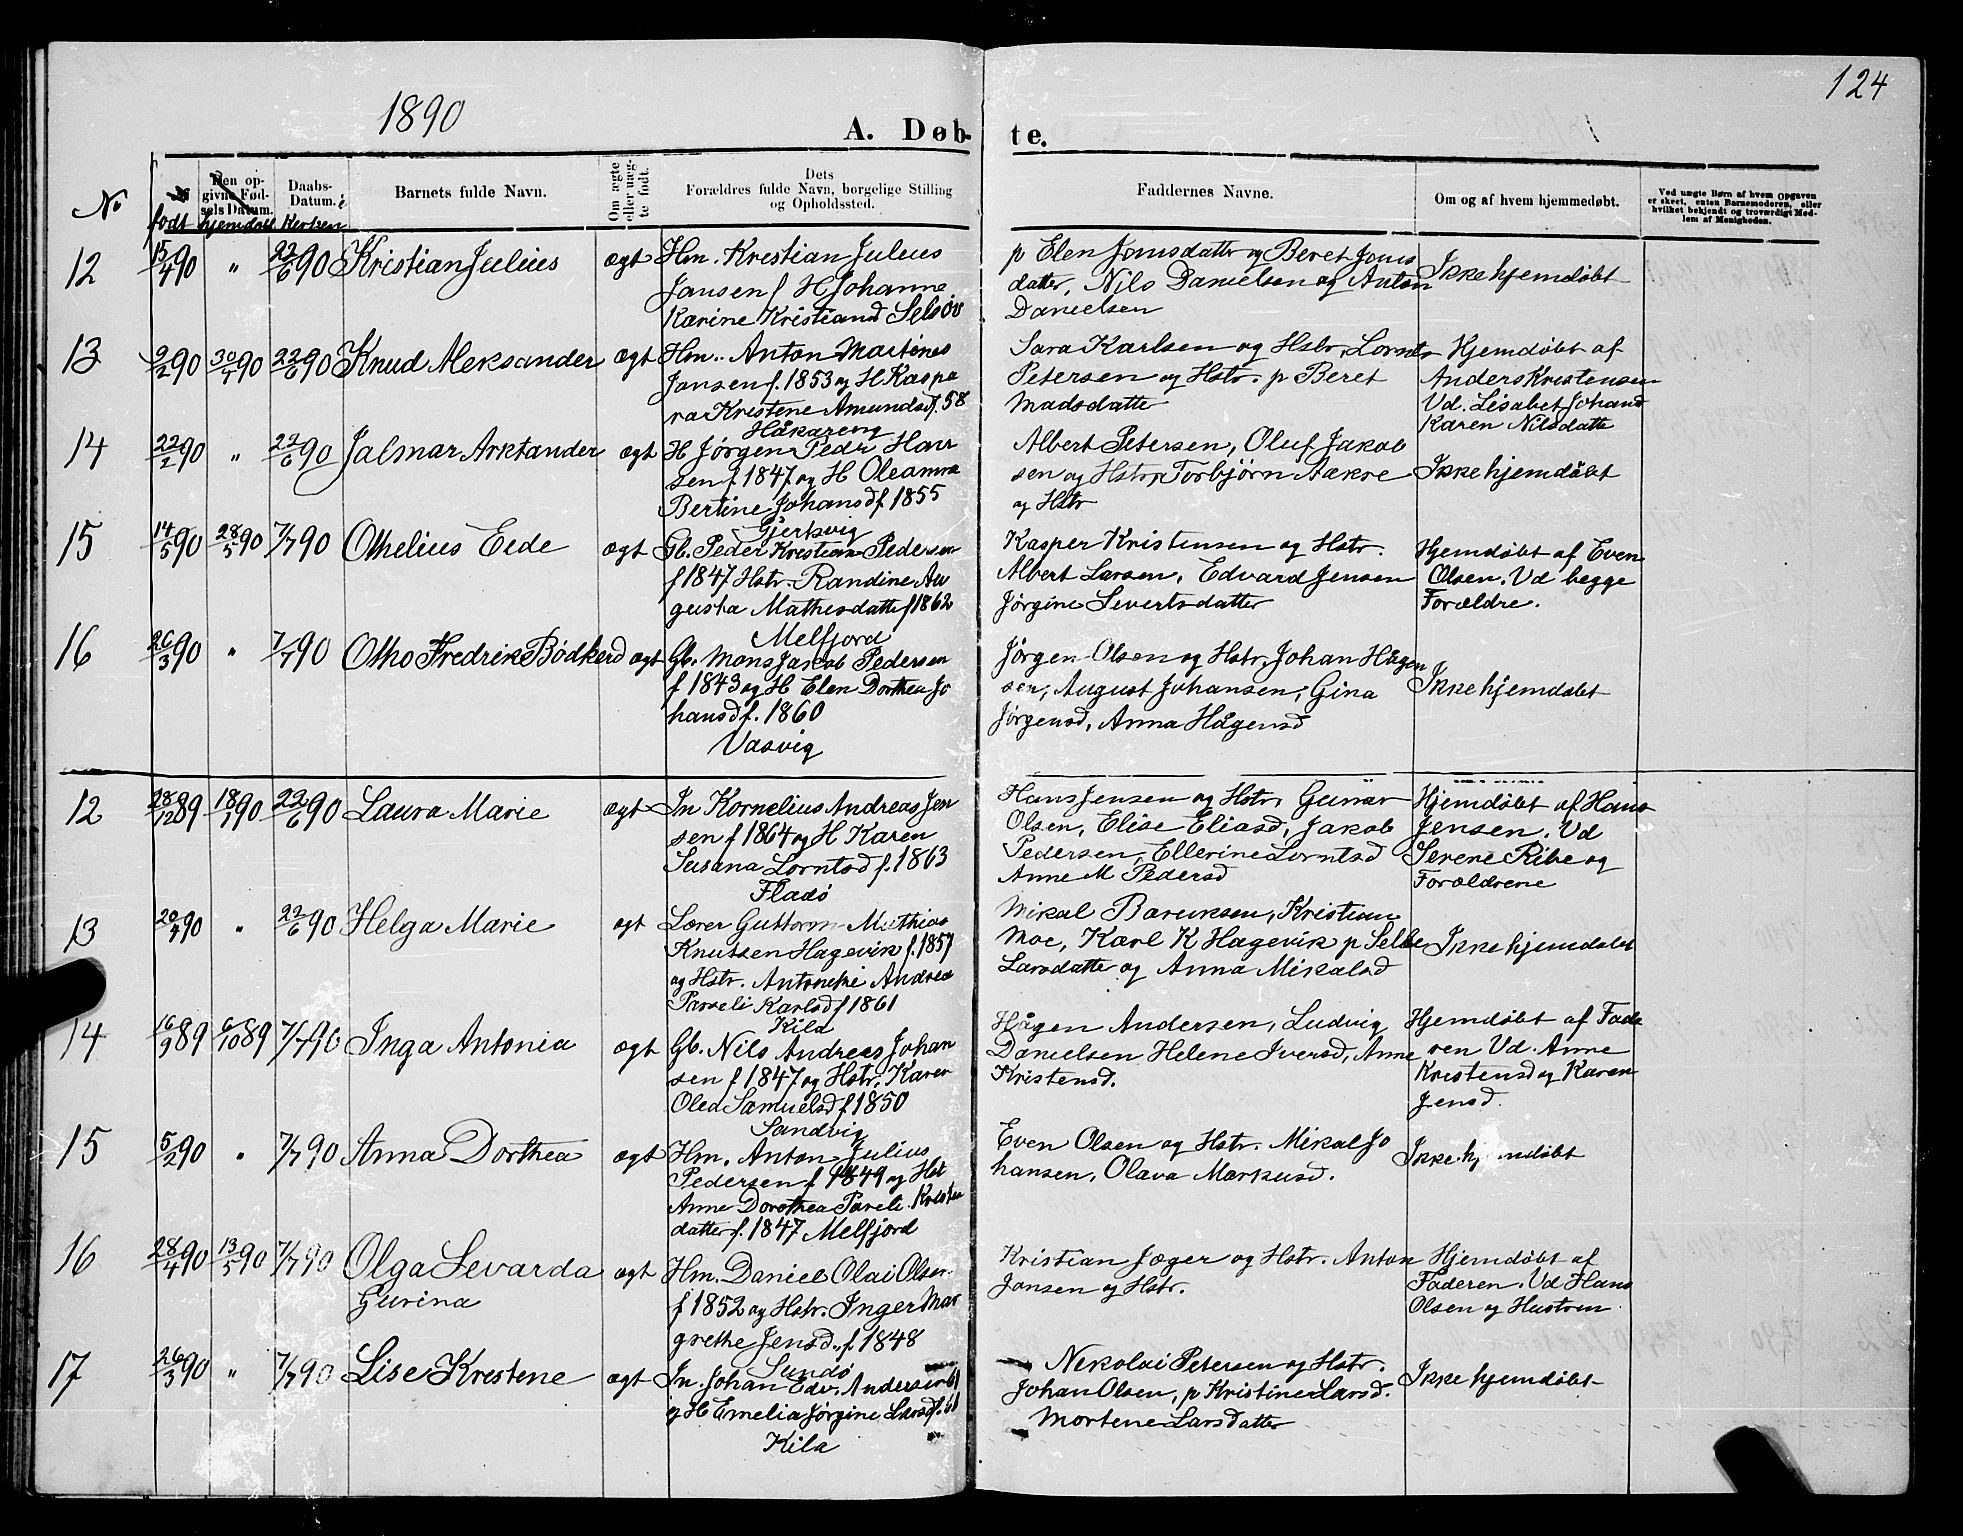 1890
124
A. Døb- te.
No
Den opgivne Fødsels Datum.
født hjemdøbt
Daabs-Datum. i Kirken
Barnets fulde Navn.
Om ægte eller uægte født.
Dets Forældres fulde Navn, borgelige Stilling og Opholdssted.
Faddernes Navne.
Om og af hvem hjemmedøbt.
Ved uægte Børn af hvem Opgaven er skeet, enten Barnemoderen, eller hvilket bekjendt og troværdigt Medlem af Menigheden.
12 15/4 90 " 22/6 90 Kristian Julius ægt Hm. Kristian Julius
Jansen f H Johanne
Karine Kristiansd Selsöv
p Elen Jonsdatter og Beret Jons
datter, Nils Danielsen og Anton
Danielsen
Ikke hjemdøbt
13 2/2 90 30/4 90 22/6 90 Knud Aleksander ægt Hm. Anton Martines
Jansen f. 1853 og H Kaspa
ra Kristene Amundsd f. 58
Håkareng
Sara Karlsen og Hstr, Lornts
Petersen og Hstr. p Beret
Madsdatter
Hjemdøbt af
Anders Kristensen
Vd. Lisabet Johansd
Karen Nilsdatte
14 22/2 90 " 22/6 90 Jalmar Arktander ægt H Jørgen Pedr Han
sen f 1847 og H Oleanna
Bertine Johansd f. 1855
Gjerksvig
Albert Petersen, Oluf Jakob
sen og Hstr, Torbjørn Aakre
og Hstr
Ikke hjemdøbt
15 14/5 90 28/5 90 7/7 90 Othelius Eede ægt Gb. Peder Kristian Pedersen
f 1847 Hstr. Randine Au
gusta Mathisdatter f 1862
Melfjord
Kasper Kristensen og Hstr.
Albert Larsen, Edvard Jensen
Jørgine Sivertsdatter
Hjemdøbt af Even
Olsen. Vd begge
Forældre.
16 26/3 90 " 7/7 90 Otho Fredrik Bødkerd ægt Gb. Mons Jakob Pedersen
f 1843 og H Elen Dorthea Jo
hansd f. 1860
Vasvig
Jørgen Olsen og Hstr, Johan Hågen
sen, August Johansen, Gina
Jørgensd, Anna Hågensd
Ikke hjemdøbt
12 28/12 89 18/1 90 22/6 90 Laura Marie ægt In Kornelius Andreas Jen
sen f 1864 og H Karen
Susana Lorntsd f. 1863
Fladö
Hans Jensen og Hstr, Gunar
Olsen, Elise Eliasd, Jakob
Pedersen, Ellerine Lorntsd
Anne M Pedersd
Hjemdøbt af Hans
Jensen. Vd
Serene Ribe og
Forældrene
13 20/4 90 " 22/6 90 Helga Marie ægt Lærer Guttorm Mathias
Knutsen Hagevik f. 1857
og Hstr. Antonette Andrea
Parseli Karlsd f 1861
Kila
Mikal Baruksen, Kristian
Moe, Karl K Hagevik p Selle
Larsdatter og Anna Mikalsd
Ikke hjemdøbt
14 16/9 89 6/10 89 7/7 90 Inga Antonia ægt Gb. Nils Andreas Johan
sen f 1847 og Hstr. Karen
Olea Samuelsd f 1850
Sandvig
Hågen Andersen, Ludvig
Danielsen Helene Iversd, Anne
Kristensd.
Hjemdøbt af Fade
ren Vd. Anne
Kristensd og Karen
Jensd.
15 5/2 90 " 7/7 90 Anna Dorthea ægt Hm. Anton Julius
Pedersen f 1849 og Hst
Anne Dorothea Pareli. Kristen
datter f. 1847 Melfjord
Even Olsen og Hstr. Mikal Jo
hansen, Olava Markusd.
Ikke hjemdøbt
16 28/4 90 13/5 90 7/7 90 Olga Sevarda
Gurina
ægt Hm. Daniel Olai Olsen
f 1852 og Hstr. Inger Mar
grethe Jensd. f. 1848
Sundö
Kristian Jæger og Hstr. Anton
Jansen og Hstr.
Hjemdøbt af
Faderen. Vd Hans
Olsen og Hustrun
17 26/3 90 " 7/7 90 Lise Kristene ægt In. Johan Edv. Andersen 61
og H Emelia Jørgine Larsd f. 66
Kila
Nikolai Petersen og Hstr.
Johan Olsen, p Kristine Larsd.
Mortene Larsdatter
Ikke hjemdøbt